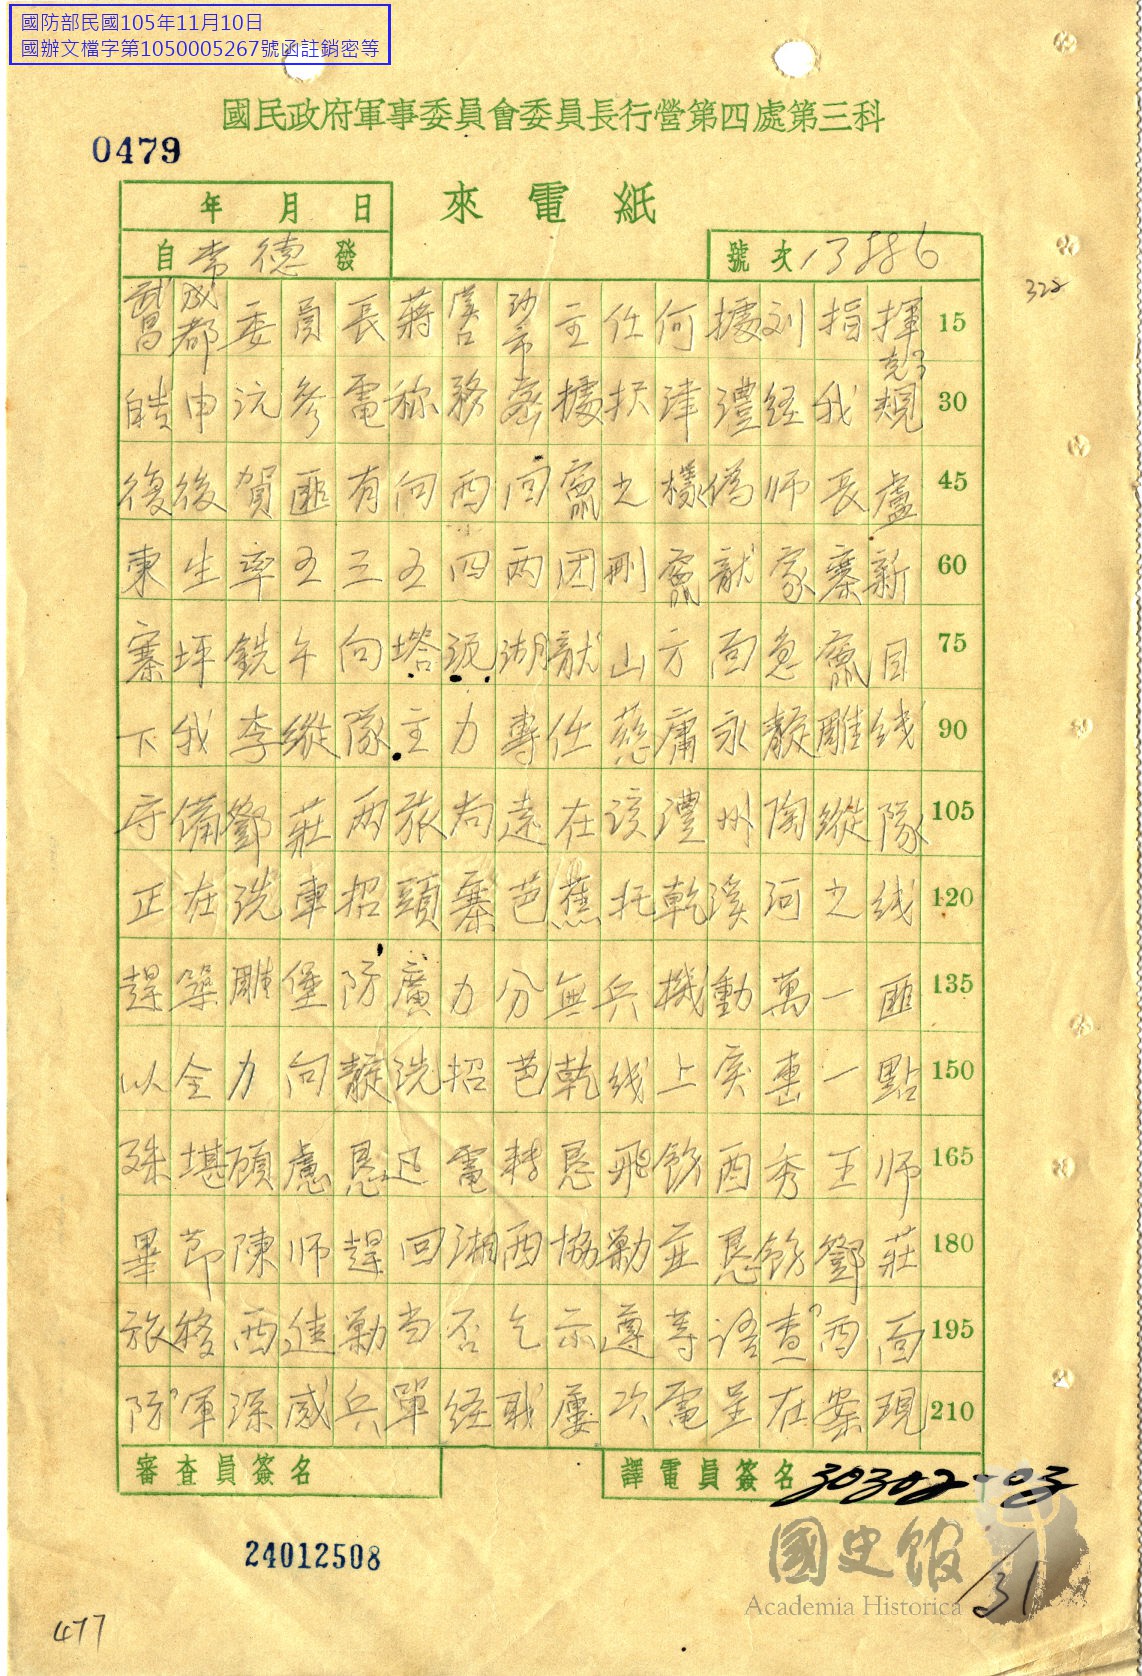 國防部民國105年11月10日
國辦文檔字第1050005267號函註銷密等
國民政府軍事委員會委員長行營第四處第三科
0479
來電紙
年 月 日
自 常德 發
號次 13886
328
武昌成都委員長蔣漢口沙市主任何據刘指揮 15
皓申沅參電称務密據択津澧経我 克 覌 30
復後賀匪有向西回竄之様偽师長盧 45
東生率五三五四两团刪竄龍家寨新 60
寨坪銑午向塔泥湖龍山方面急竄目 75
下我李縱隊主力專任慈庸永靛雕线 90
守備鄧莊两旅尚遠在該澧州陶縱隊 105
正在洗車招頭寨芭蕉托乾溪河之线 120
趕築雕堡防廣力分無兵機動萬一匪 135
以全力向靛洗招芭乾线上突出一點 150
殊堪顧慮恳迅電轉恳飛飭酉秀王师 165
畢節陳师趕回湘西協勦並恳飭鄧莊 180
旅移西進勦当否乞示遵等语查西面 195
防軍深感兵單経戢屢次電呈在案現 210
審查員簽名
譯電員簽名
30302-03
24012508
國史館
Academia Historica
131
477